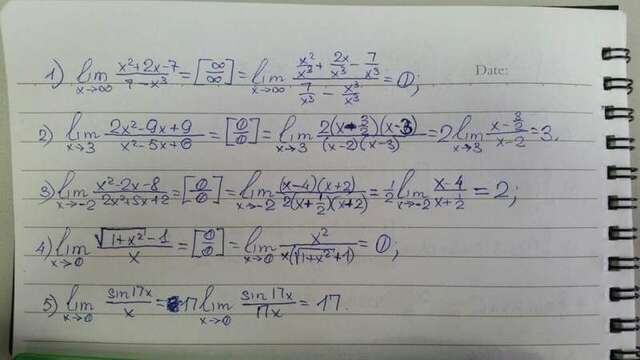 Date:
1) lim x→∞ (x²+2x-7)/(7-x³) = [∞/∞] = lim x→∞ (x²/x³ + 2x/x³ - 7/x³)/(7/x³ - x³/x³) = 0;
2) lim x→3 (2x²-9x+9)/(x²-5x+6) = [0/0] = lim x→3 2(x-3/2)(x-3)/(x-2)(x-3) = 2 lim x→3 (x-3/2)/(x-2) = 3.
3) lim x→-2 (x²-2x-8)/(2x²+5x+2) = [0/0] = lim x→-2 (x-4)(x+2)/2(x+1/2)(x+2) = 1/2 lim x→-2 (x-4)/(x+1/2) = 2;
4) lim x→0 (√(1+x²)-1)/x = [0/0] = lim x→0 x²/x(√(1+x²)+1) = 0;
5) lim x→0 sin17x/x = 17 lim x→0 sin17x/17x = 17.